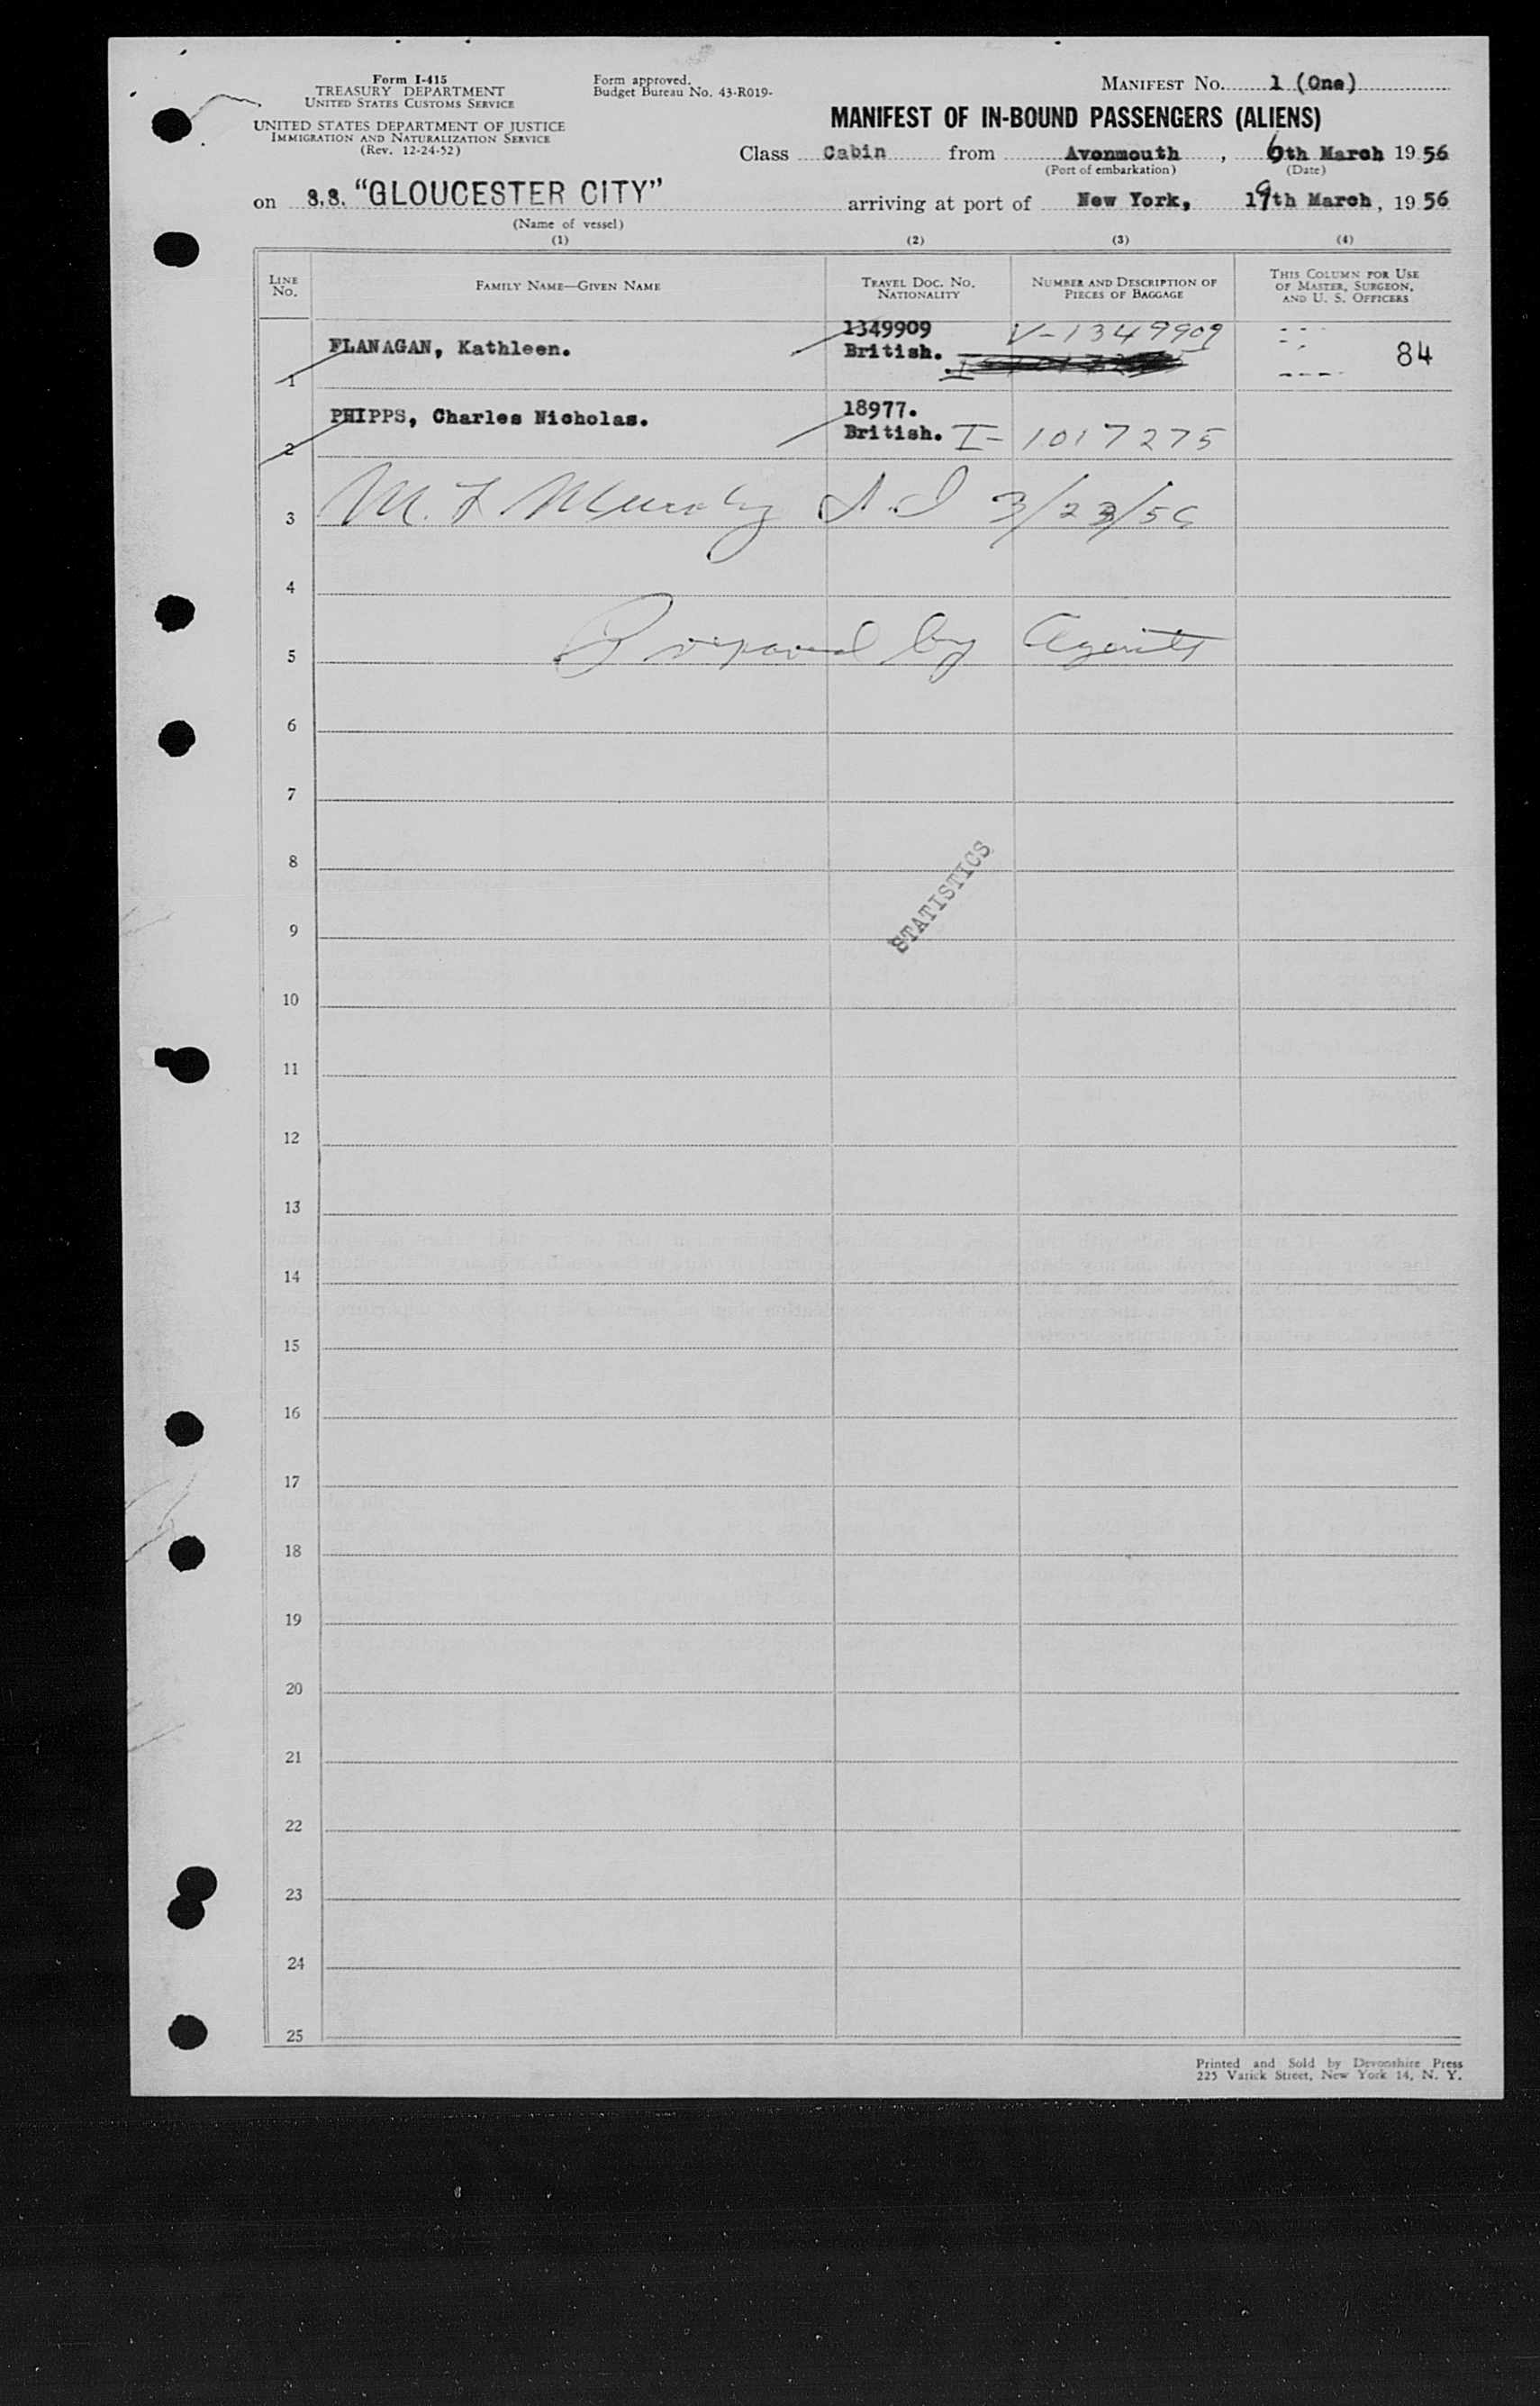 Form I-415
TREASURY DEPARTMENT
UNITED STATES CUSTOMS SERVICE
UNITED STATES DEPARTMENT OF JUSTICE
IMMIGRATION AND NATURALIZATION SERVICE
(Rev. 12-24-52)
Form approved.
Budget Bureau No. 43-R019-
MANIFEST No. 1 (One)
MANIFEST OF IN-BOUND PASSENGERS (ALIENS)
Class Cabin from Avonmouth, 6th March 1956
(Port of embarkation) (Date)
on S.S. "GLOUCESTER CITY" arriving at port of New York, 19th March, 1956
(Name of vessel)
(1) (2) (3) (4)
LINE No. FAMILY NAME—GIVEN NAME TRAVEL DOC. NO. NATIONALITY NUMBER AND DESCRIPTION OF PIECES OF BAGGAGE THIS COLUMN FOR USE OF MASTER, SURGEON, AND U. S. OFFICERS
1349909 V-1349909
FLANAGAN, Kathleen. British. 84
1
PHIPPS, Charles Nicholas. 18977.
British. I-1017275
2
3 M. F. Murphy 3/23/56
4
5 Prepared by Agents
6
7
8
STATISTICS
9
10
11
12
13
14
15
16
17
18
19
20
21
22
23
24
25
Printed and Sold by Devonshire Press
225 Varick Street, New York 14, N. Y.